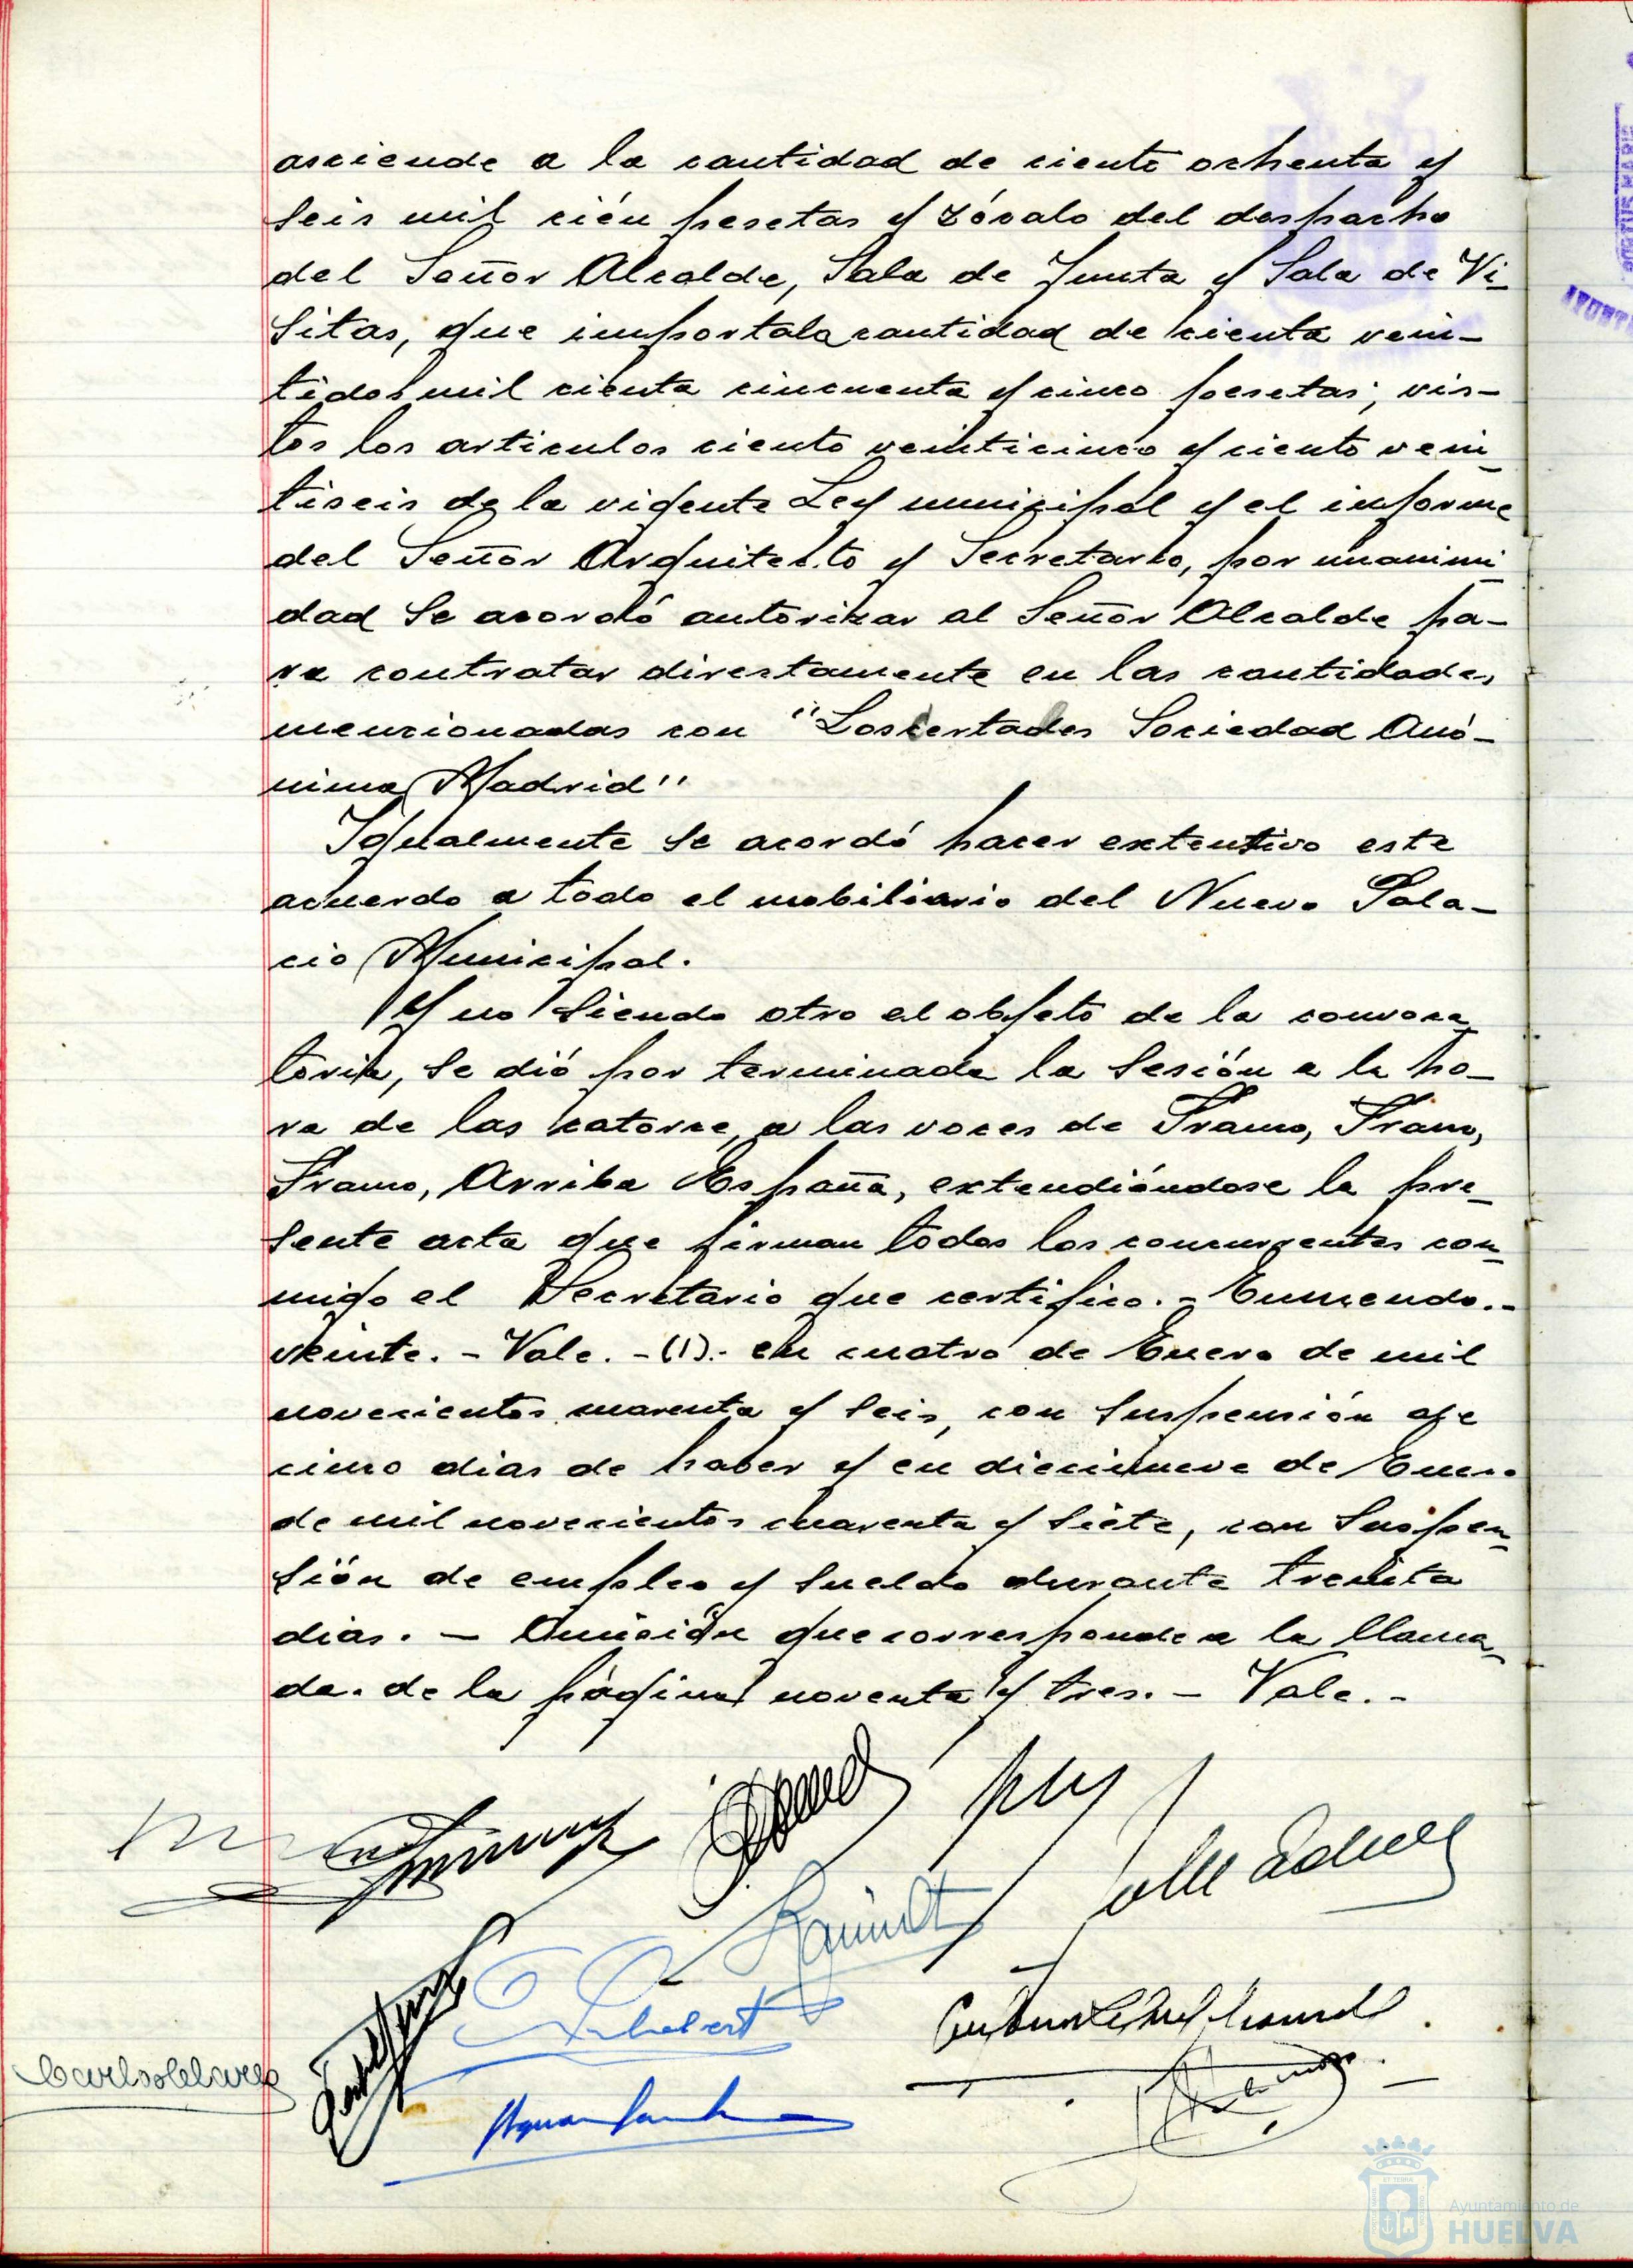 asciende a la cantidad de ciento ochenta y
seis mil cién pesetas y zócalo del despacho
del Señor Alcalde, Sala de Junta y Sala de Vi-
sitas, que importa la cantidad de cienta vein-
tidos mil cienta cincuenta y cinco pesetas; vis-
tos los articulos ciento veinticinco y ciento vein
tiseis de la vigente Ley municipal y el informe
del Señor Arquitecto y Secretario, por unanimi
dad se acordó autorizar al Señor Alcalde pa-
ra contratar directamente en las cantidades
mencionadas con "Loscertades Sociedad Anó-
nima Madrid"
Igualmente se acordó hacer extentivo este
acuerdo a todo el mobiliario del Nuevo Pala-
cio Municipal.
Y no siendo otro el objeto de la convoca
toria, se dió por terminada la sesión a la ho-
ra de las catorce, a las voces de Franco, Franco,
Franco, Arriba España, extendiéndose la pre
sente acta que firman todos los concurrentes con
migo el Secretario que certifico.- Enmendo.-
veinte. - Vale. - (1).- en cuatro de Enero de mil
novecientos cuarenta y seis, con suspensión de
cinco dias de haber y en diecinueve de Enero
de mil novecientos cuarenta y siete, con suspen
sión de empleo y sueldo durante treinta
dias. - Omisión que corresponde a la llama
da. de la página noventa y tres. - Vale. -
Ayuntamiento de
HUELVA